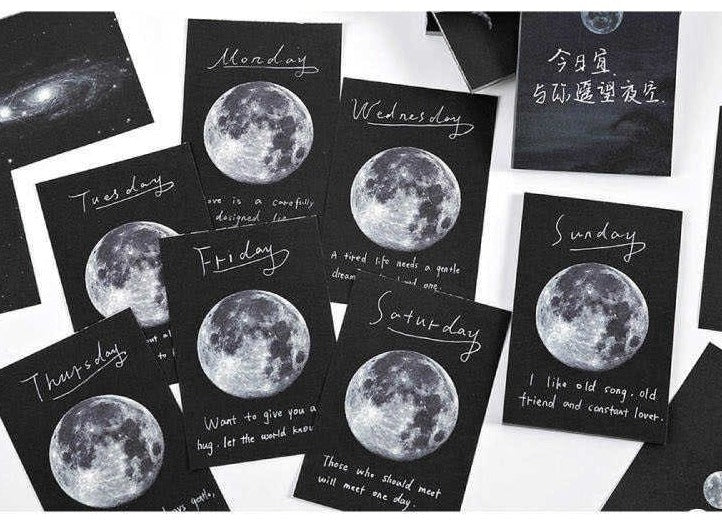 Monday
ove is a carefully
designed lie.
Wednesday
A tired life needs a gentle
dream
and one.
今日宜
与你遥望夜空.
Tuesday
out al
to
Friday
Want to give you a
hug. let the world know
Sunday
I like old song. old
friend and constant lover.
Thursday
gentle,
Saturday
Those who should meet
will meet one day.